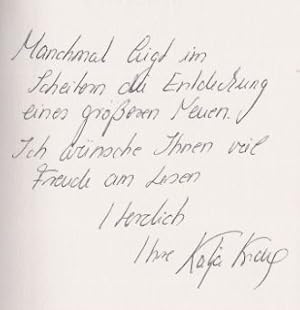 Manchmal liegt im
Scheitern die Entdeckung
eines größeren Neuen.
Ich wünsche Ihnen viel
Freude am Lesen
Herzlich
Ihre Katja